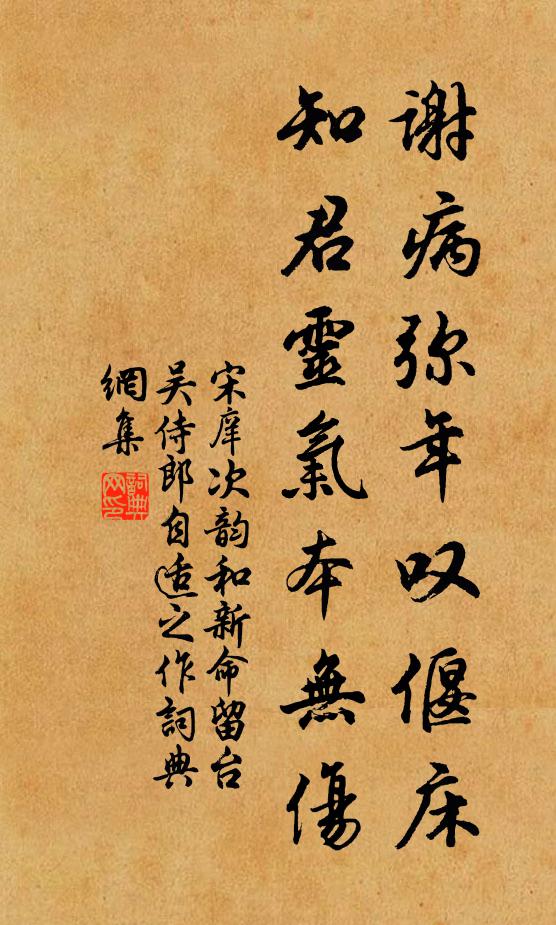 谢病弥年叹偃床
知君靈氣本無傷
宋庠次韵和新命留台
吴侍郎自适之作詞典
網集
詞典网印